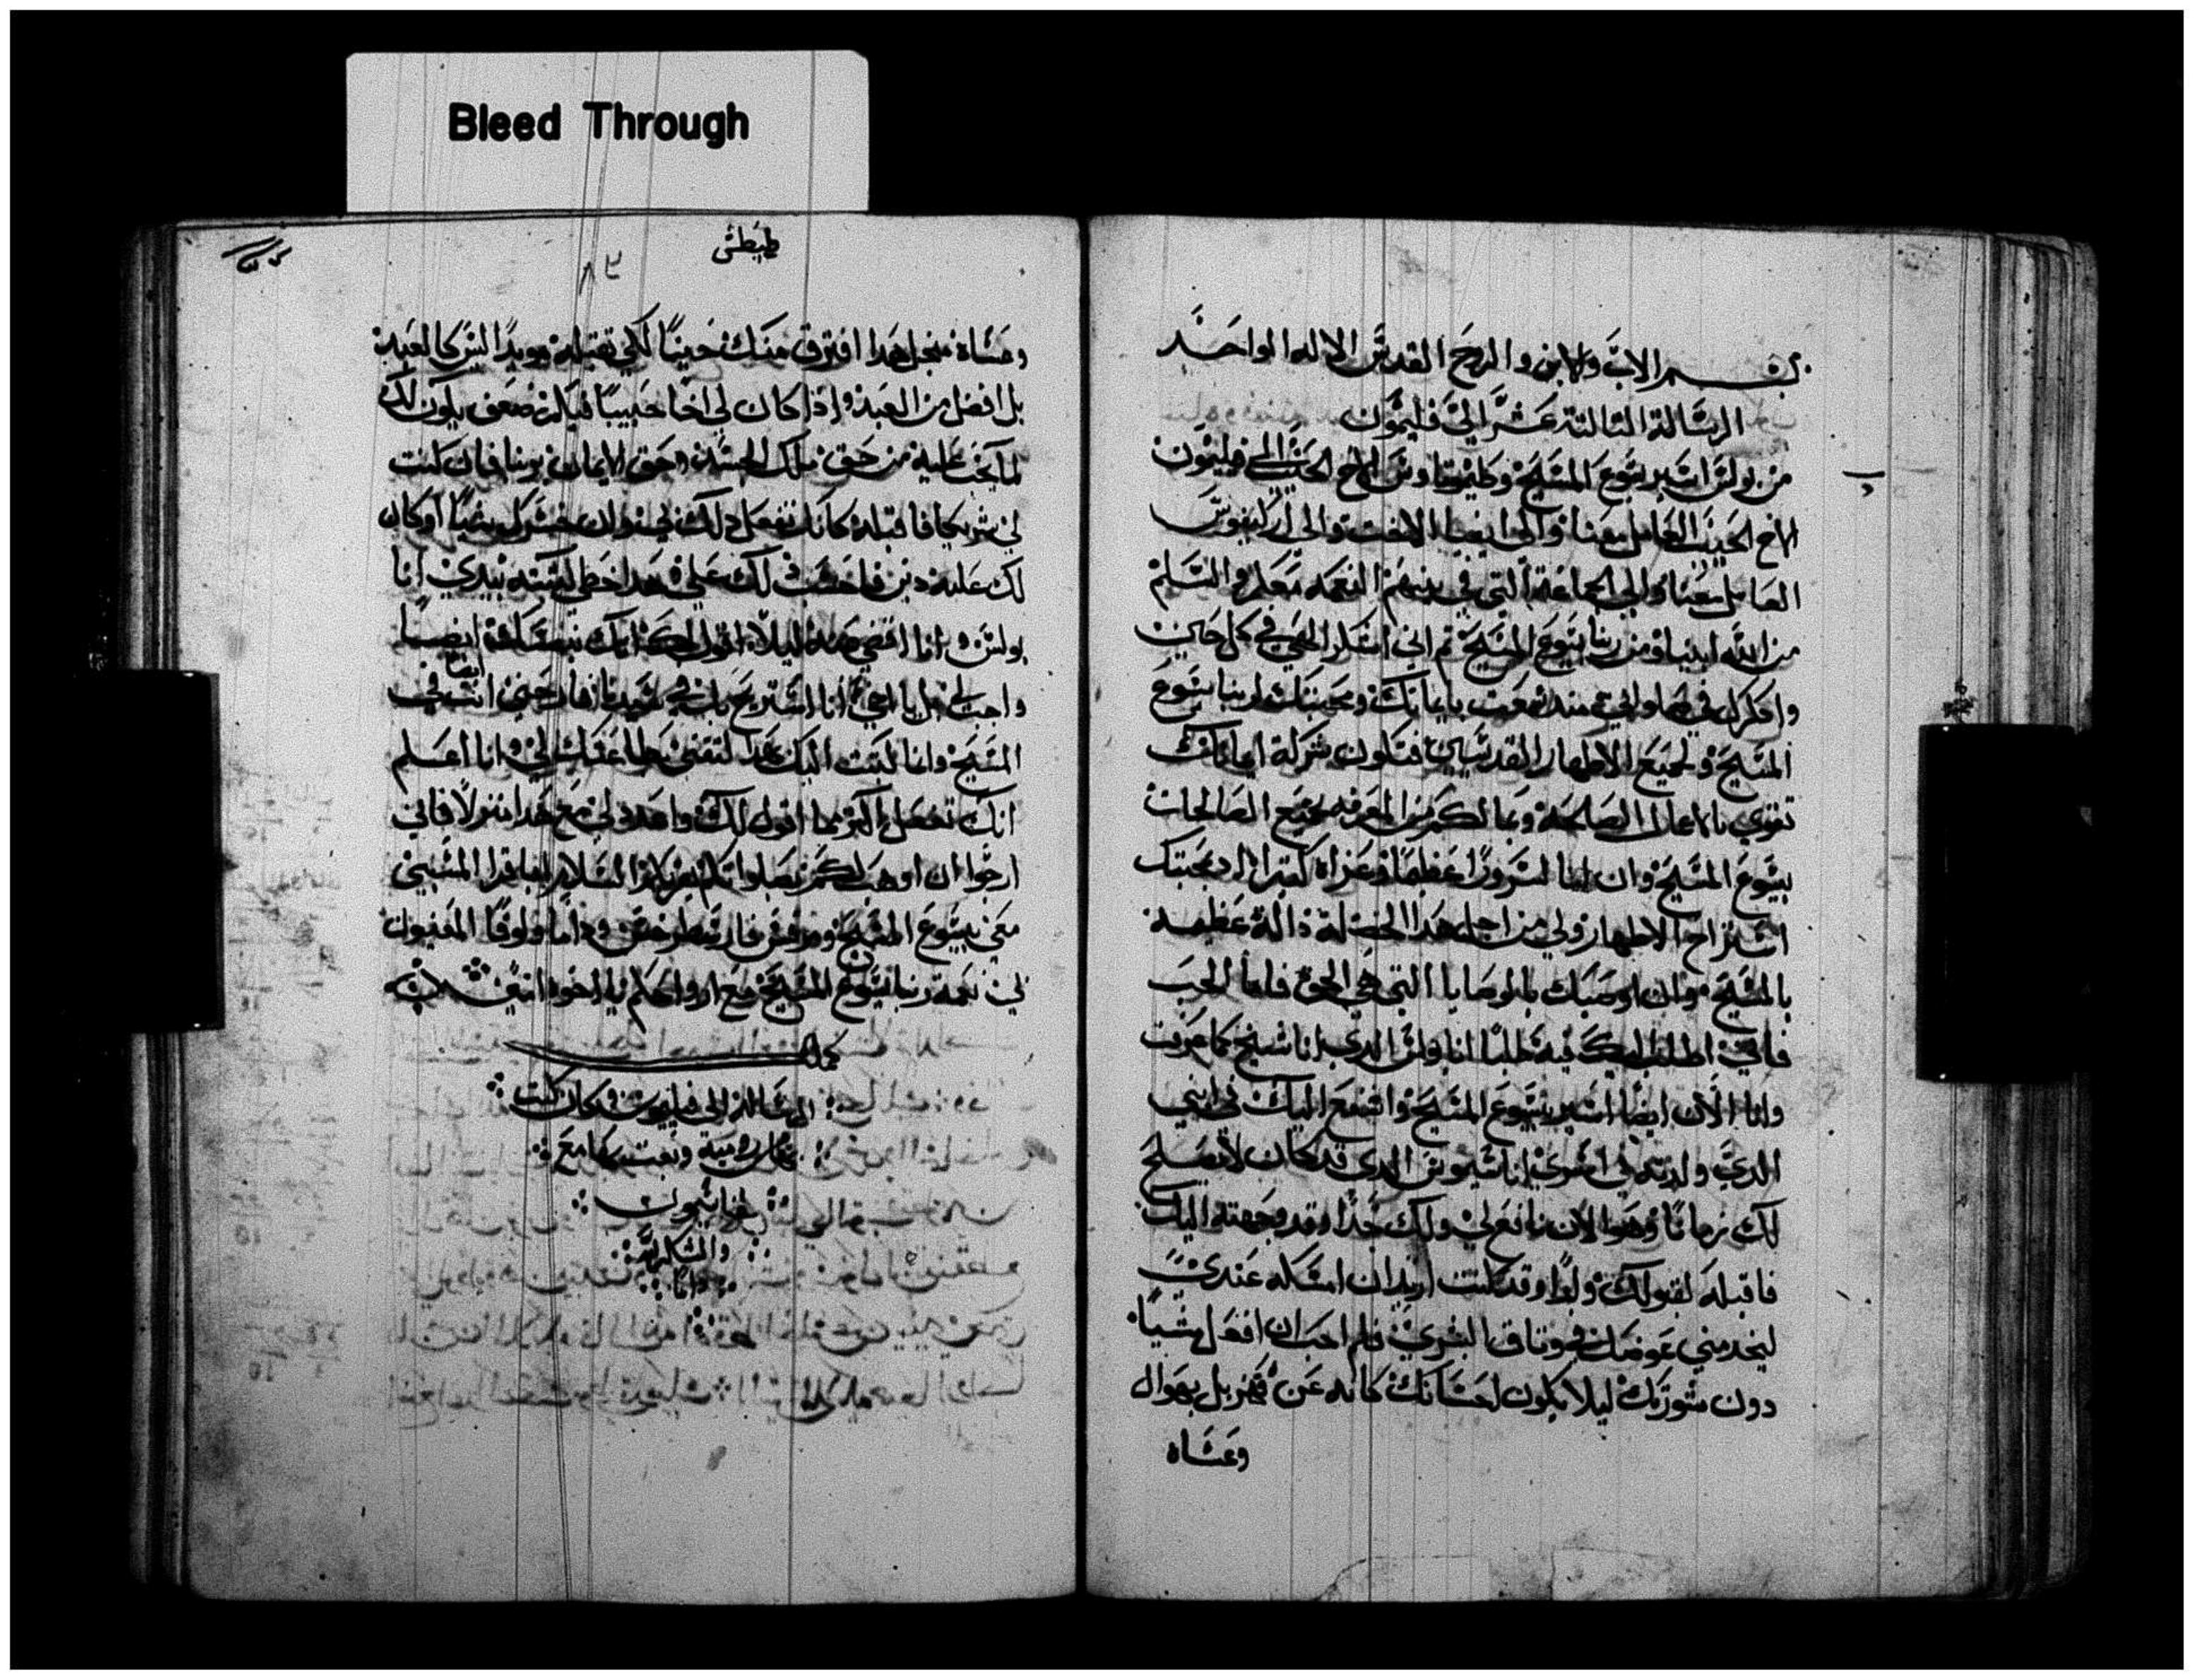 Bleed Through
بسم الاب والابن والروح القدس الاله الواحد
الرسالة التالتة عشر الي فليمون
من بولس اسير يسوع المسيح وطيموتاوس الاخ الحبيب الي فليمون
الاخ الحبيب العامل معنا والي ابفيا الاخت والي ارلبفوس
العامل معنا والي الجماعة التي في بيتهم النعمه معكم والسلم
من الله ابينا ومن ربنا يسوع المسيح تم اني اشكر الهي في كل حين
وادكرك في صلواتي مند سمعت بايمانك ومحبتك لربنا يسوع
المسيح ولجميع الاطهار القديسين فتكون شركة ايمانك
تقوي بالاعمال الصالحة وبمالكم من المعرفه بجميع الصالحات
بيسوع المسيح وان لنا لسرورًا عظيمًا وعزاه كبيرا اد بمحبتك
استراح الاطهار ولي من اجل هدا الخصلة دالة عظيمه
بالمسيح وان اوصيك بالوصايا التي هي الحق فاما الحب
فاني اطلب اليك فيه طلبًا انا بولس الدي انا شيخ كما عرفت
وانا الان ايضًا اسير يسوع المسيح واشفع اليك في ابني
الدي ولدته في اسري اناسيموس الدي قد كان لا يصلح
لك زمانًا وهو الان نافع لي ولك جدًا وقد وجهته اليك
فاقبله لقبولك ولدًا وقد كنت اريد ان امسكه عندي
ليخدمني عوضك في وتاق البشري فلم احب ان افعل شيًا
دون مشورتك ليلا يكون احسانك كانه عن قهر بل بهوال
وعساه
طيطس
٨٢
وعساه من اجل هدا افترق منك حينًا لكي تقبله مويدًا ليس كالعبد
بل افضل من العبد وادا كان لي اخًا حبيبًا فياله ضعف يكون لك
لما يجب عليه من حق ملك الجسد وحق الايمان بربنا فان كنت
لي شريكا فاقبله كانك تفعل دلك لي وان خسرك شيًا او كان
لك عليه دين فاحسب دلك علي هدا خطي كتبته بيدي انا
بولس وانا اقضي عنه ليلا اقول لك انك بنفسك ايضًا
واجب لي يا اخي انا استريح بك في سيدنا فارحني انت ايضا في
المسيح وانما كتبت اليك لتقتي بطاعتك لي وانا اعلم
انك تفعل اكتر مما اقول لك واعدد لي مع هدا منزلًا فاني
ارجوا ان اوهب لكم بصلواتكم يقريك السلام ابافرا المسبي
معي بيسوع المسيح ومرقس وارسطرخس وداما ولوقا المعينون
لي نعمة ربنا يسوع المسيح مع ارواحكم يا اخوه امين
كملت
الرسالة الي فليمون وكان كتب
بها من رومية وبعت بها مع
اناسيمون
والشكر لله
دايما